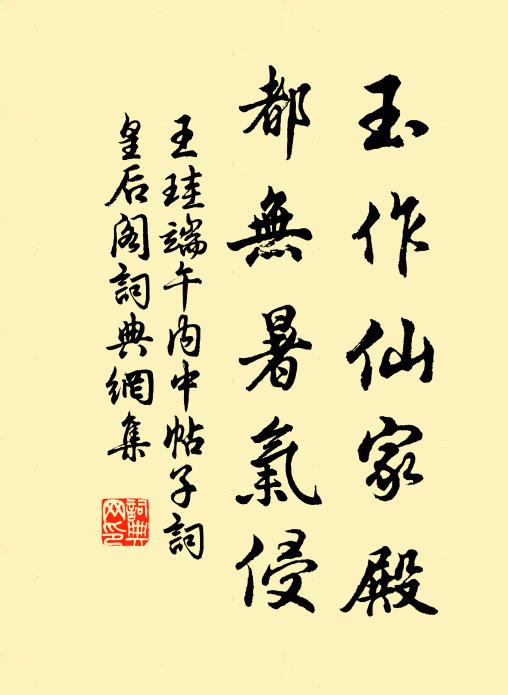 玉作仙家殿
都無暑氣侵
王珪端午内中帖子詞
皇后阁詞典網集
詞典网印